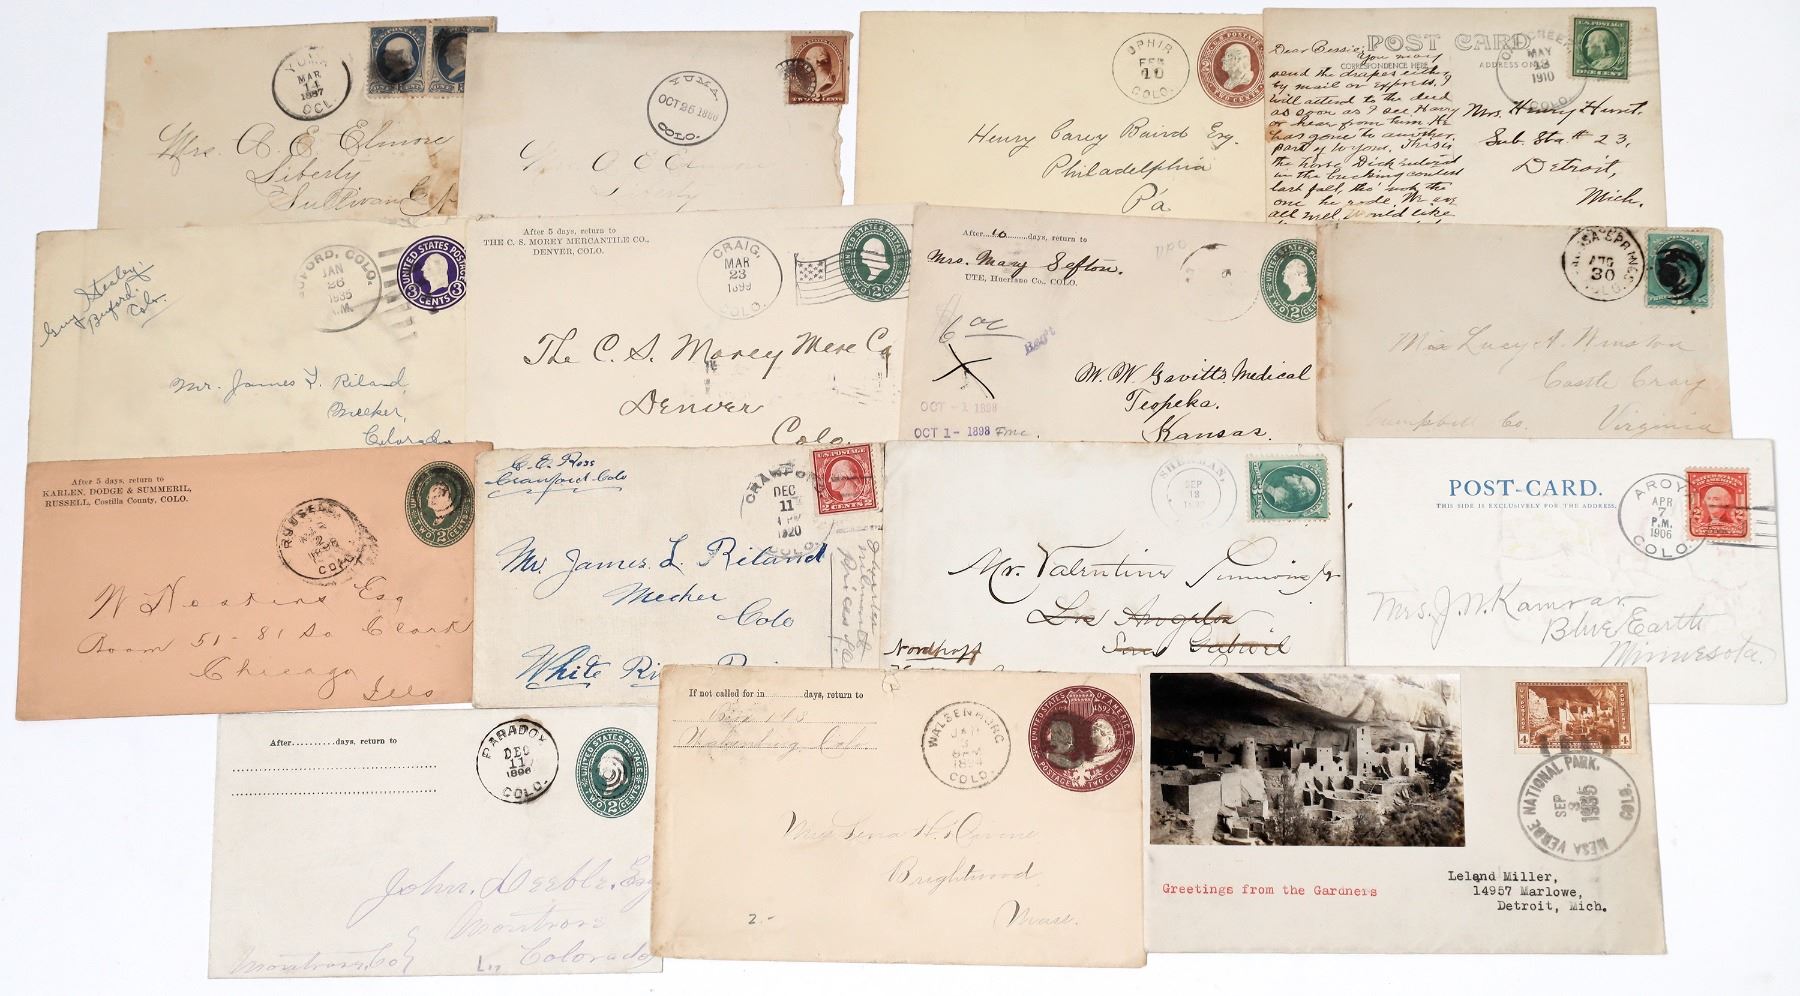 YUMA
MAR
14
1887
COL.
Mrs. O. E. Elmore
Liberty
Sullivan Co. N
YUMA
OCT 26 1886
COLO.
TWO 2 CENTS
Mrs O E Elmore
Liberty
OPHIR,
FEB
10
COLO.
Henry Carey Baird Esq.
Philadelphia
Pa
POST CARD
CORRESPONDENCE HERE
ADDRESS ONLY
U.S. POSTAGE
ONE CENT
OAK CREEK
MAY
1910
COLO.
Dear Bessie: You may
send the drapes either
by mail or express.
will attend to the deed
as soon as I see Harry
or hear from him. He
has gone to another
part of Wyom. This is
the horse Dick entered
in the bucking contest
last fall, tho' not the
one he rode. We are
all well. Would like
Mrs. Henry Hunt.
Sub. Sta. # 23,
Detroit,
Mich.
Guy Stealey.
Buford
Colo.
BUFORD, COLO.
JAN
26
1935
UNITED STATES POSTAGE
3 CENTS 3
Mr. James L. Riland,
Meeker,
Colorado
After 5 days, return to
THE C. S. MOREY MERCANTILE CO.,
DENVER, COLO.
CRAIG,
MAR
23
1899
COLO.
The C. S. Morey Merc Co
Denver
Colo.
After 10 days, return to
Mrs. Mary Sefton.
UTE, Huerfano Co., COLO.
OCT - 1 1898
OCT 1 - 1898
W. W. Gavitt's Medical
Topeka.
Kansas.
AUG
30
COLO.
Miss Lucy A. Winston
Castle Craig
Campbell Co. Virginia
After 5 days, return to
KARLEN, DODGE & SUMMERIL,
RUSSELL, Costilla County, COLO.
RUSSELL
COLO.
TWO 2 CENTS
Esq
Room 51 - 81 So Clark
Chicago
Ills
C. E. Ross
Crawford Colo
CRAWFORD
DEC
11
1920
COLO.
U.S. POSTAGE
2 CENTS 2
Mr. James L. Riland
Meeker
Colo
White River
SHERMAN,
SEP
18
Mr. Valentine Simmons Jr
Los Angelos
San Gabriel
Nordhoff
POST-CARD.
THIS SIDE IS EXCLUSIVELY FOR THE ADDRESS.
AROYA
APR
7
P.M.
1906
COLO.
Mrs. J. W. Kamrar
Blue Earth
Minnesota.
After..........days, return to
PARADOX
DEC
11
1896
COLO.
UNITED STATES POSTAGE
TWO 2 CENTS
John Deeble, Esq
Montrose
Montrose Co Colorado
If not called for in ............ days, return to
Box 113
Walsenburg, Colo.
WALSENBURG
JAN
1894
COLO.
UNITED STATES OF AMERICA
POSTAGE TWO CENTS
Miss Lena H. Divine
Brightwood
Mass.
2.-
4 4
MESA VERDE NATIONAL PARK,
COLO.
SEP
3
1935
Greetings from the Gardners
Leland Miller,
14957 Marlowe,
Detroit, Mich.